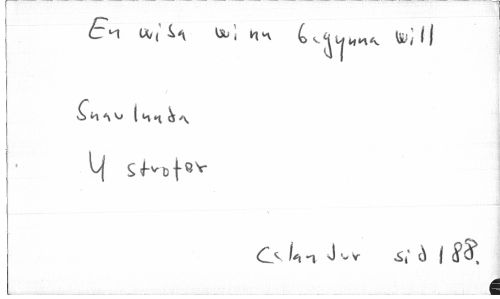 En wisa wi nu begynna will
Snavlunda
4 strofer
Calandur sid 188.